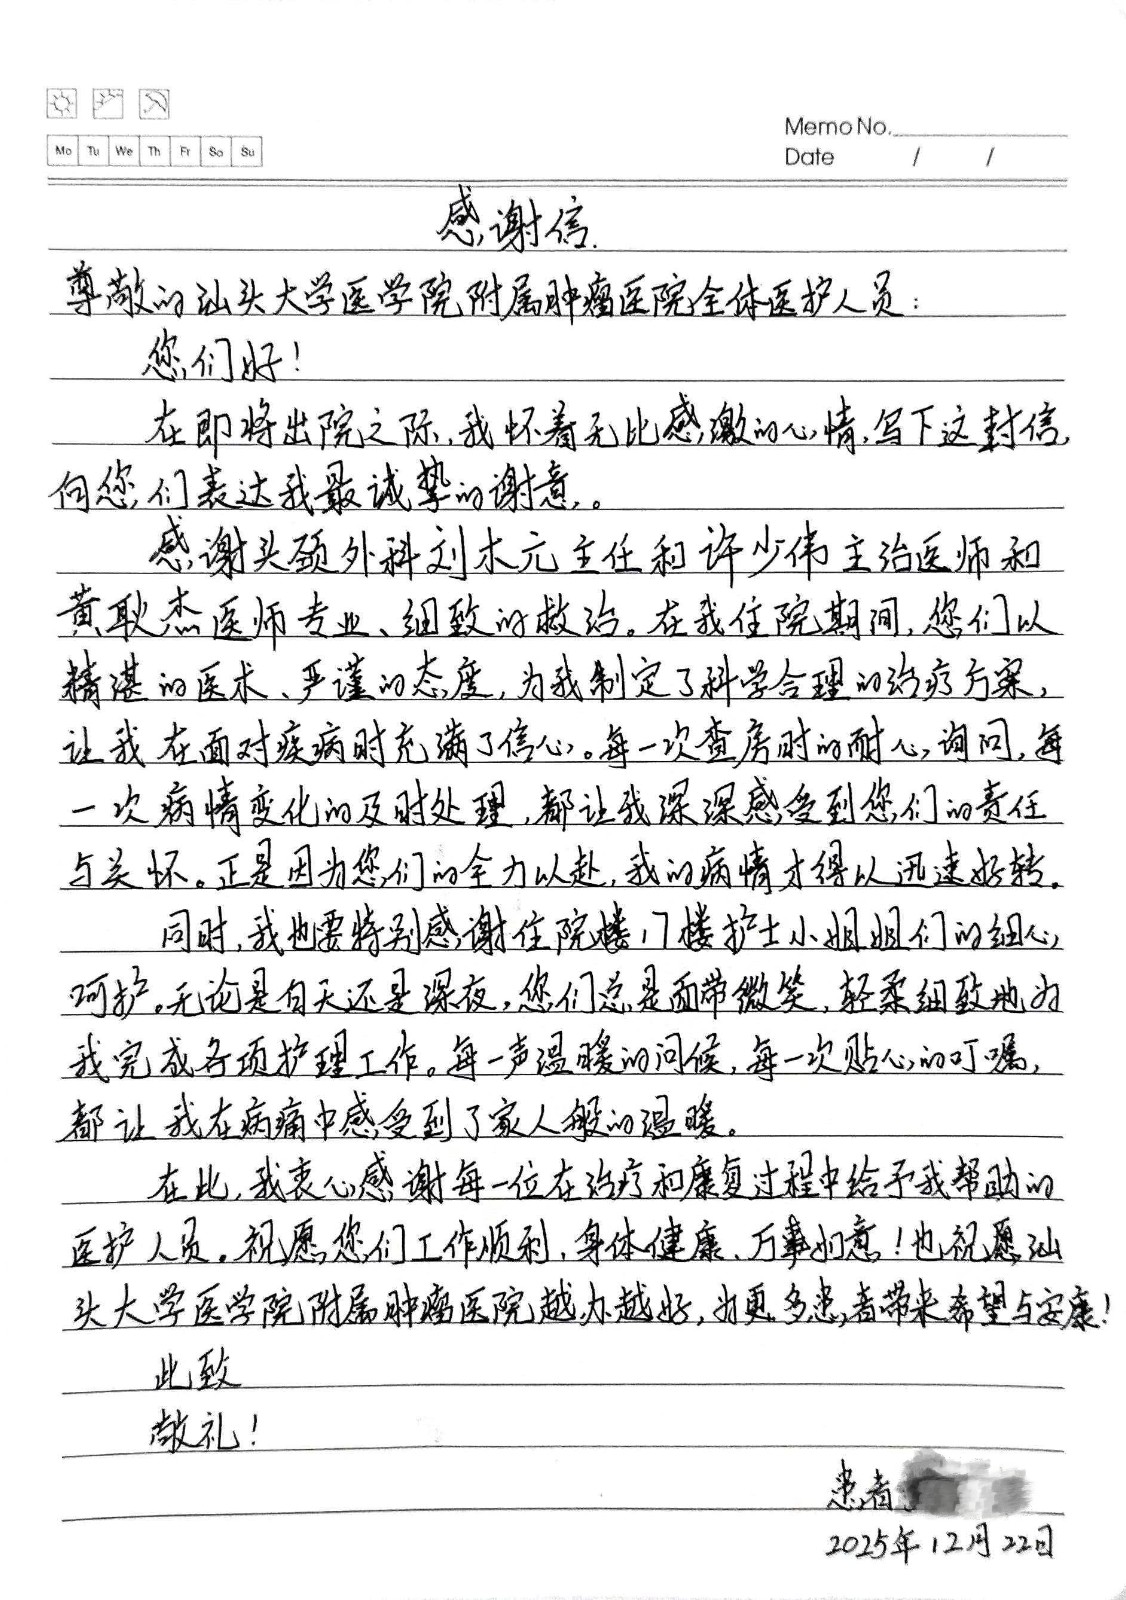 Memo No.
Mo Tu We Th Fr Sa Su
Date / /
感谢信.
尊敬的汕头大学医学院附属肿瘤医院全体医护人员：
您们好！
在即将出院之际，我怀着无比感激的心情，写下这封信，
向您们表达我最诚挚的谢意。
感谢头颈外科刘木元主任和许少伟主治医师和
黄耿杰医师专业、细致的救治。在我住院期间，您们以
精湛的医术、严谨的态度，为我制定了科学合理的治疗方案，
让我在面对疾病时充满了信心。每一次查房时的耐心询问，每
一次病情变化的及时处理，都让我深深感受到您们的责任
与关怀。正是因为您们的全力以赴，我的病情才得以迅速好转。
同时，我也要特别感谢住院楼17楼护士小姐姐们的细心
呵护。无论是白天还是深夜，您们总是面带微笑，轻柔细致地为
我完成各项护理工作。每一声温暖的问候，每一次贴心的叮嘱，
都让我在病痛中感受到了家人般的温暖。
在此，我衷心感谢每一位在治疗和康复过程中给予我帮助的
医护人员。祝愿您们工作顺利，身体健康、万事如意！也祝愿汕
头大学医学院附属肿瘤医院越办越好，为更多患者带来希望与安康！
此致
敬礼！
患者
2025年12月22日